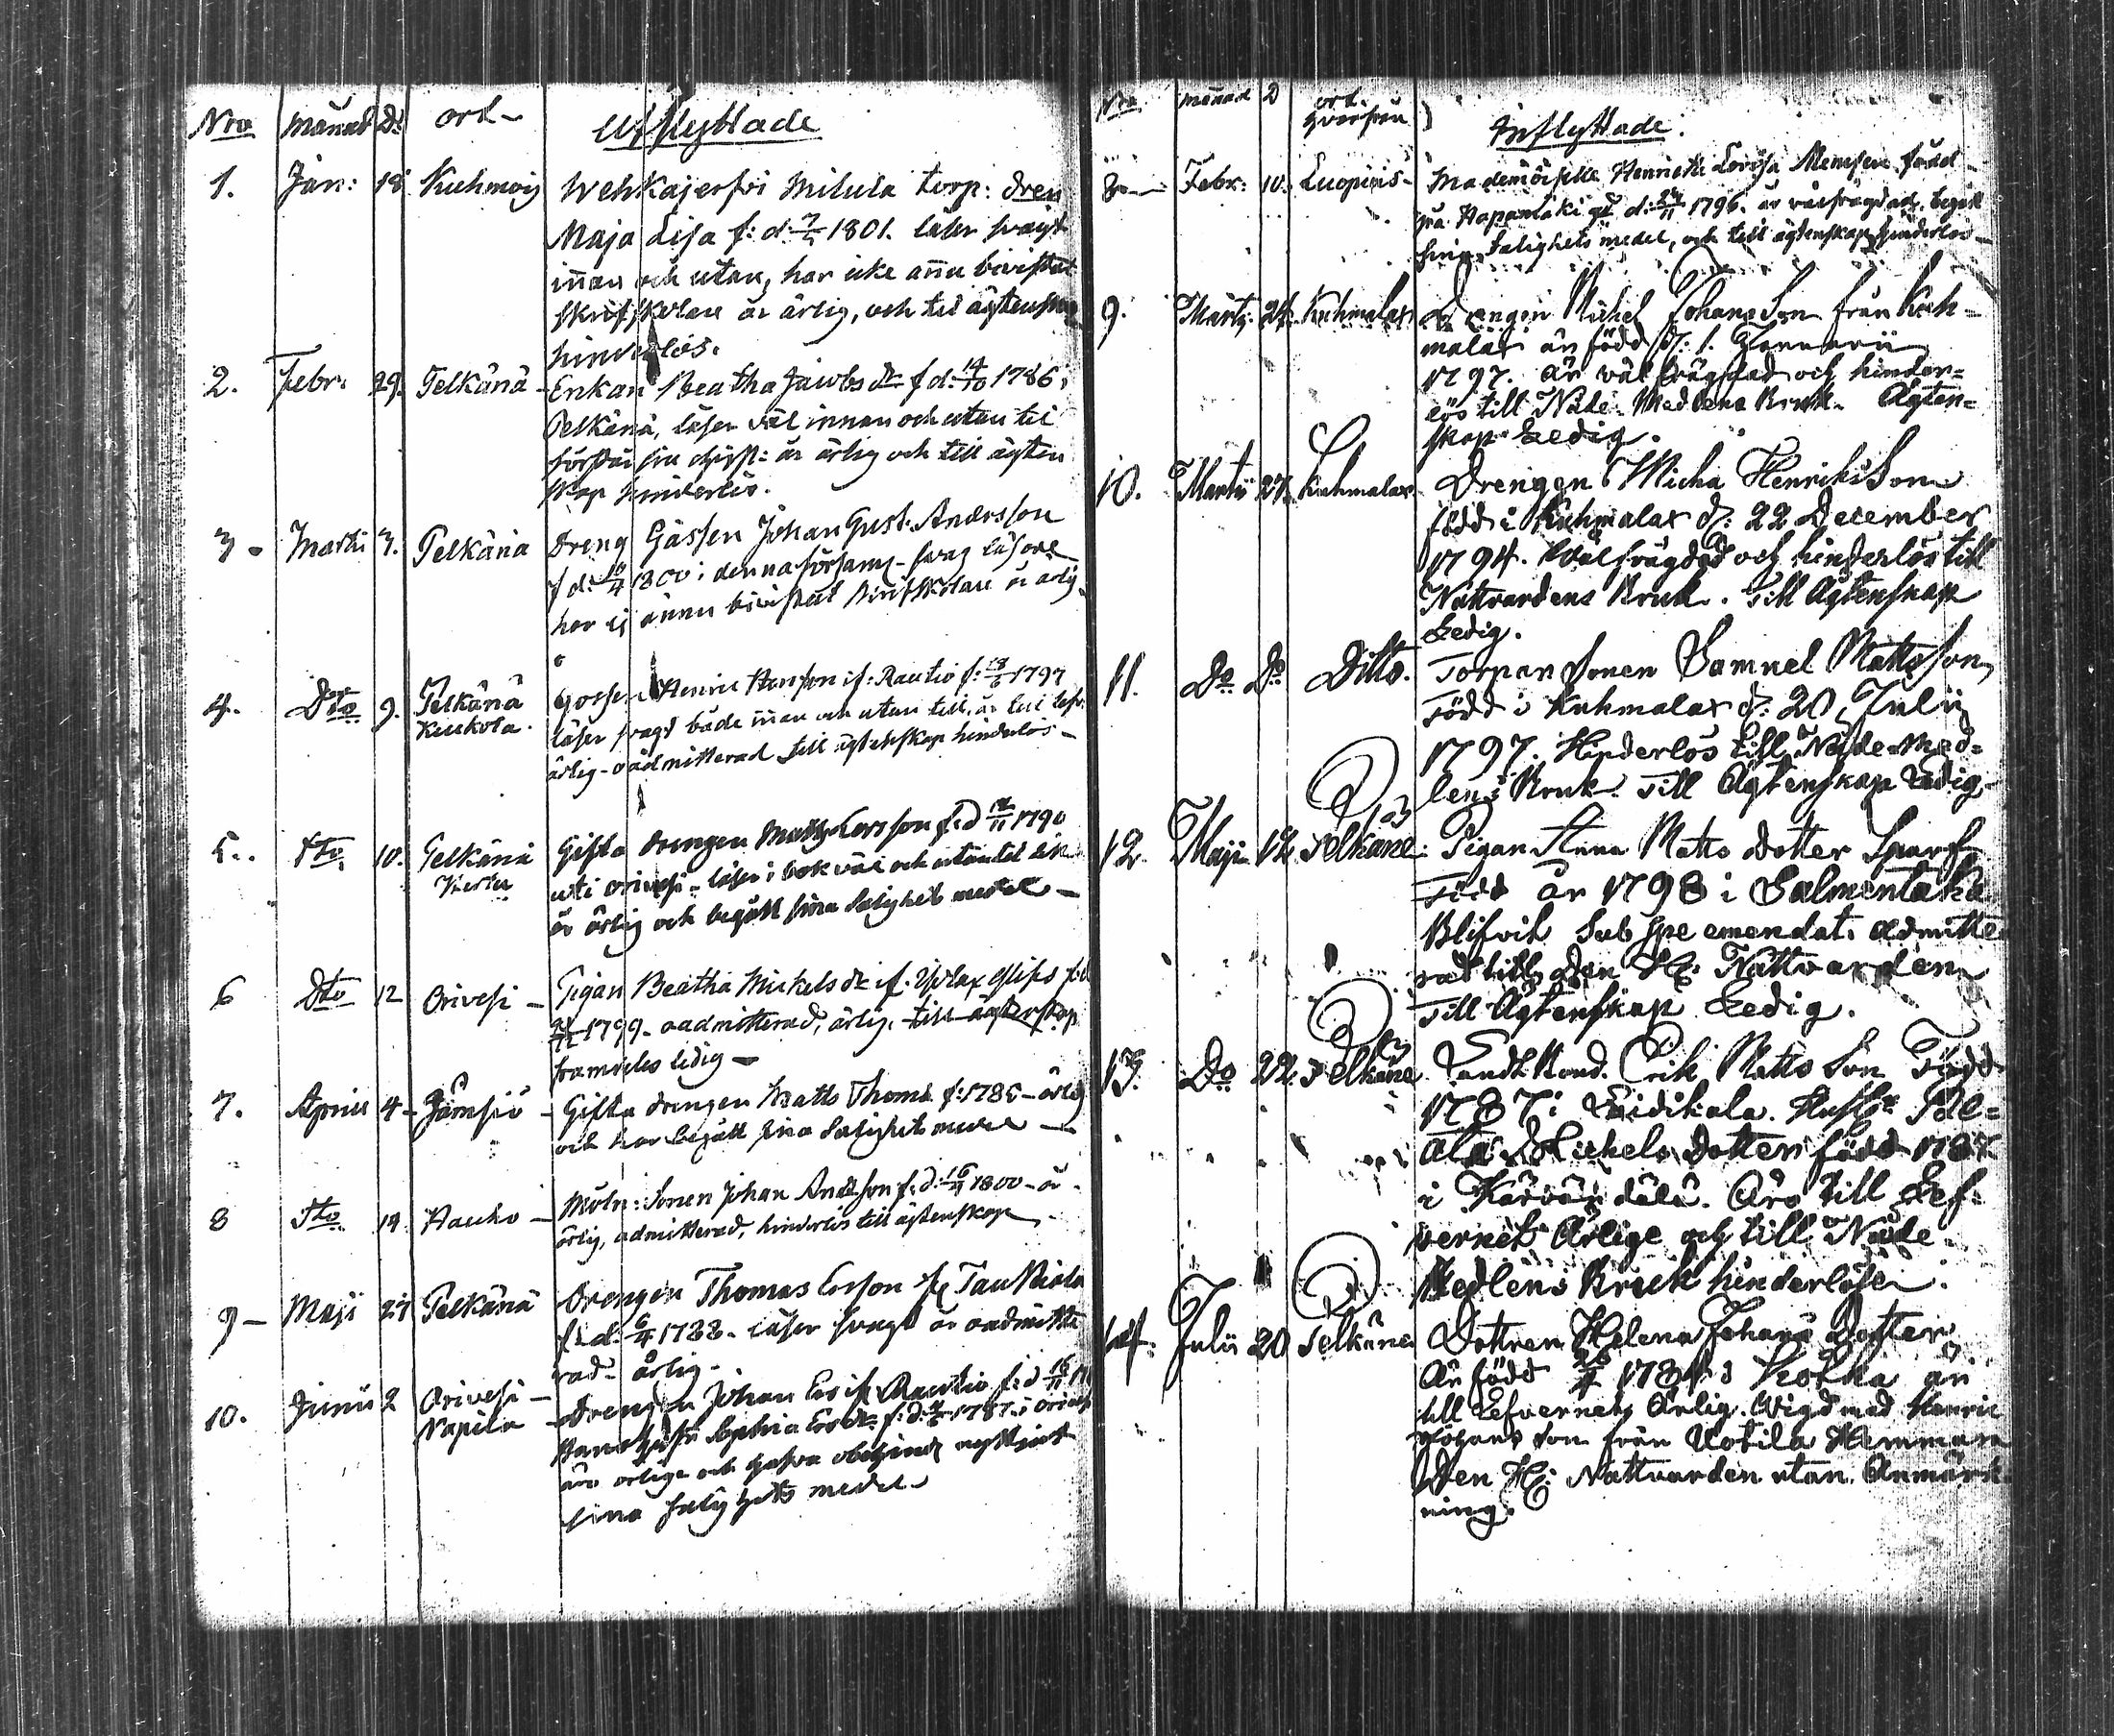 Nro Månad D: ort
Utflyttade
1. Jan: 18 Kuhmois Wehkajerfvi Mikula torp: dren
Maja Lisa f: d: 1801. läser svagt
innan och utan, har icke annu bivistat
skriftskolan är ärlig, och til ägtenskap
hinderlös.
2. Febr: 29. Pelkänä Enkan Beatha Jacobs dr f d: 14/10 1786 i
Pelkänä, läser väl innan och utan til
förstår sin christ: är ärlig och till ägten
skap hinderlös.
3 Martii 3. Pelkänä Dreng Gåssen Johan Gust. Andersson
f d: 1800 i denna församl svag läsare
har ej ännu bivistat skriftskolan är ärlig.
4. Dto 9. Pelkänä
Kuckola.
Gossen Henric Hansson if: Rautio f: 18/6 1797
läser svagt både innan och utan till, är till lefv.
ärlig oadmitterad till ägtenskap hinderlös
5. Dto 10. Pelkänä
Gifta drengen Matts Larsson f: d 1790
uti Orivesi läser i bok väl och utantil
är ärlig och begått sina Salighets medel
6 Dto 12 Orivesi Pigan Beatha Mickels dr if.
1799. oadmitterad, ärlig. till ägtenskap
framdeles ledig
7. Aprill 4 Jämsiö Gifta drengen Matts Thoms f: 1785 ärlig
och har begått sina Salighets medel
8 Dto 19. Hauho Möln: Sonen Johan Andersson f. d: 1800 är
ärlig, admitterad, hinderlös till ägtenskap
9 Maji 27 Pelkänä Drengen Thomas Ersson
f: d: 6/4 1788. läser svagt är oadmitte
rad ärlig.
10. Junii 2 Orivesi
Napila
Drengen Johan Ers if Rautio f: d 16/11
Hans hustru Sophia Ers dr f: d: 1787 i Orivesi
äro ärlige och hafva obehindr nyttjat
sina salighets medel
Nro månad D ort
hvarifrån
Inflyttade.
8 Febr: 10. Luopiois Mademoiselle Henricke Lovisa född
på Hapaniaki gd d: 24/11 1796. är välfrägdad, begåt
sina Salighets medel, och till ägtenskap hinderlös
9. Martii 24 Kuhmalax Drengen Michel Johans Son från Kuh=
malax är född d: 1. Januarii
1797. är väl frägdad och hinder=
lös till Nåde Medlens Bruk. Ägten=
skap Ledig.
10. Martii 27. Kuhmalax Drengen Micha Henriks Son
född i Kuhmalax d: 22 December
1794. Välfrägdad och hinderlös till
Nattvardens Bruk. Till Ägtenskap
Ledig.
11. Do Do Ditto. Torpar Sonen Samuel Matts Son
Född i Kuhmalax d: 20 Julii
1797. Hinderlös till Nåde Med=
lens Bruk. Till Ägtenskap Ledig
12. Maji 12 Pelkäne Pigan Anna Matts Dotter Sparf
Född år 1798 i Salmentaka
Blifvit Sub spe emendat. admitte
rad till den H: Nattvarden
Till Ägtenskap Ledig.
13. Do 22. Pelkäne Landt Bond. Erik Matts Son Född
1787 i Laidikala. Hustr.
Michels Dotter född 1787
i Kärvän dälä. Äro till Lef=
vernet Ärlige och till Nåde
Medlens Bruk hinderlöse.
14. Julii 20 Pelkäne Dottren Helena Johans Dotter
Är född 1784 i Kotka är
till Lefvernets Ärlig. Vigd med Henric
Johans Son från Uotila Hemman
Den H: Nattvarden utan Anmärk
ning.